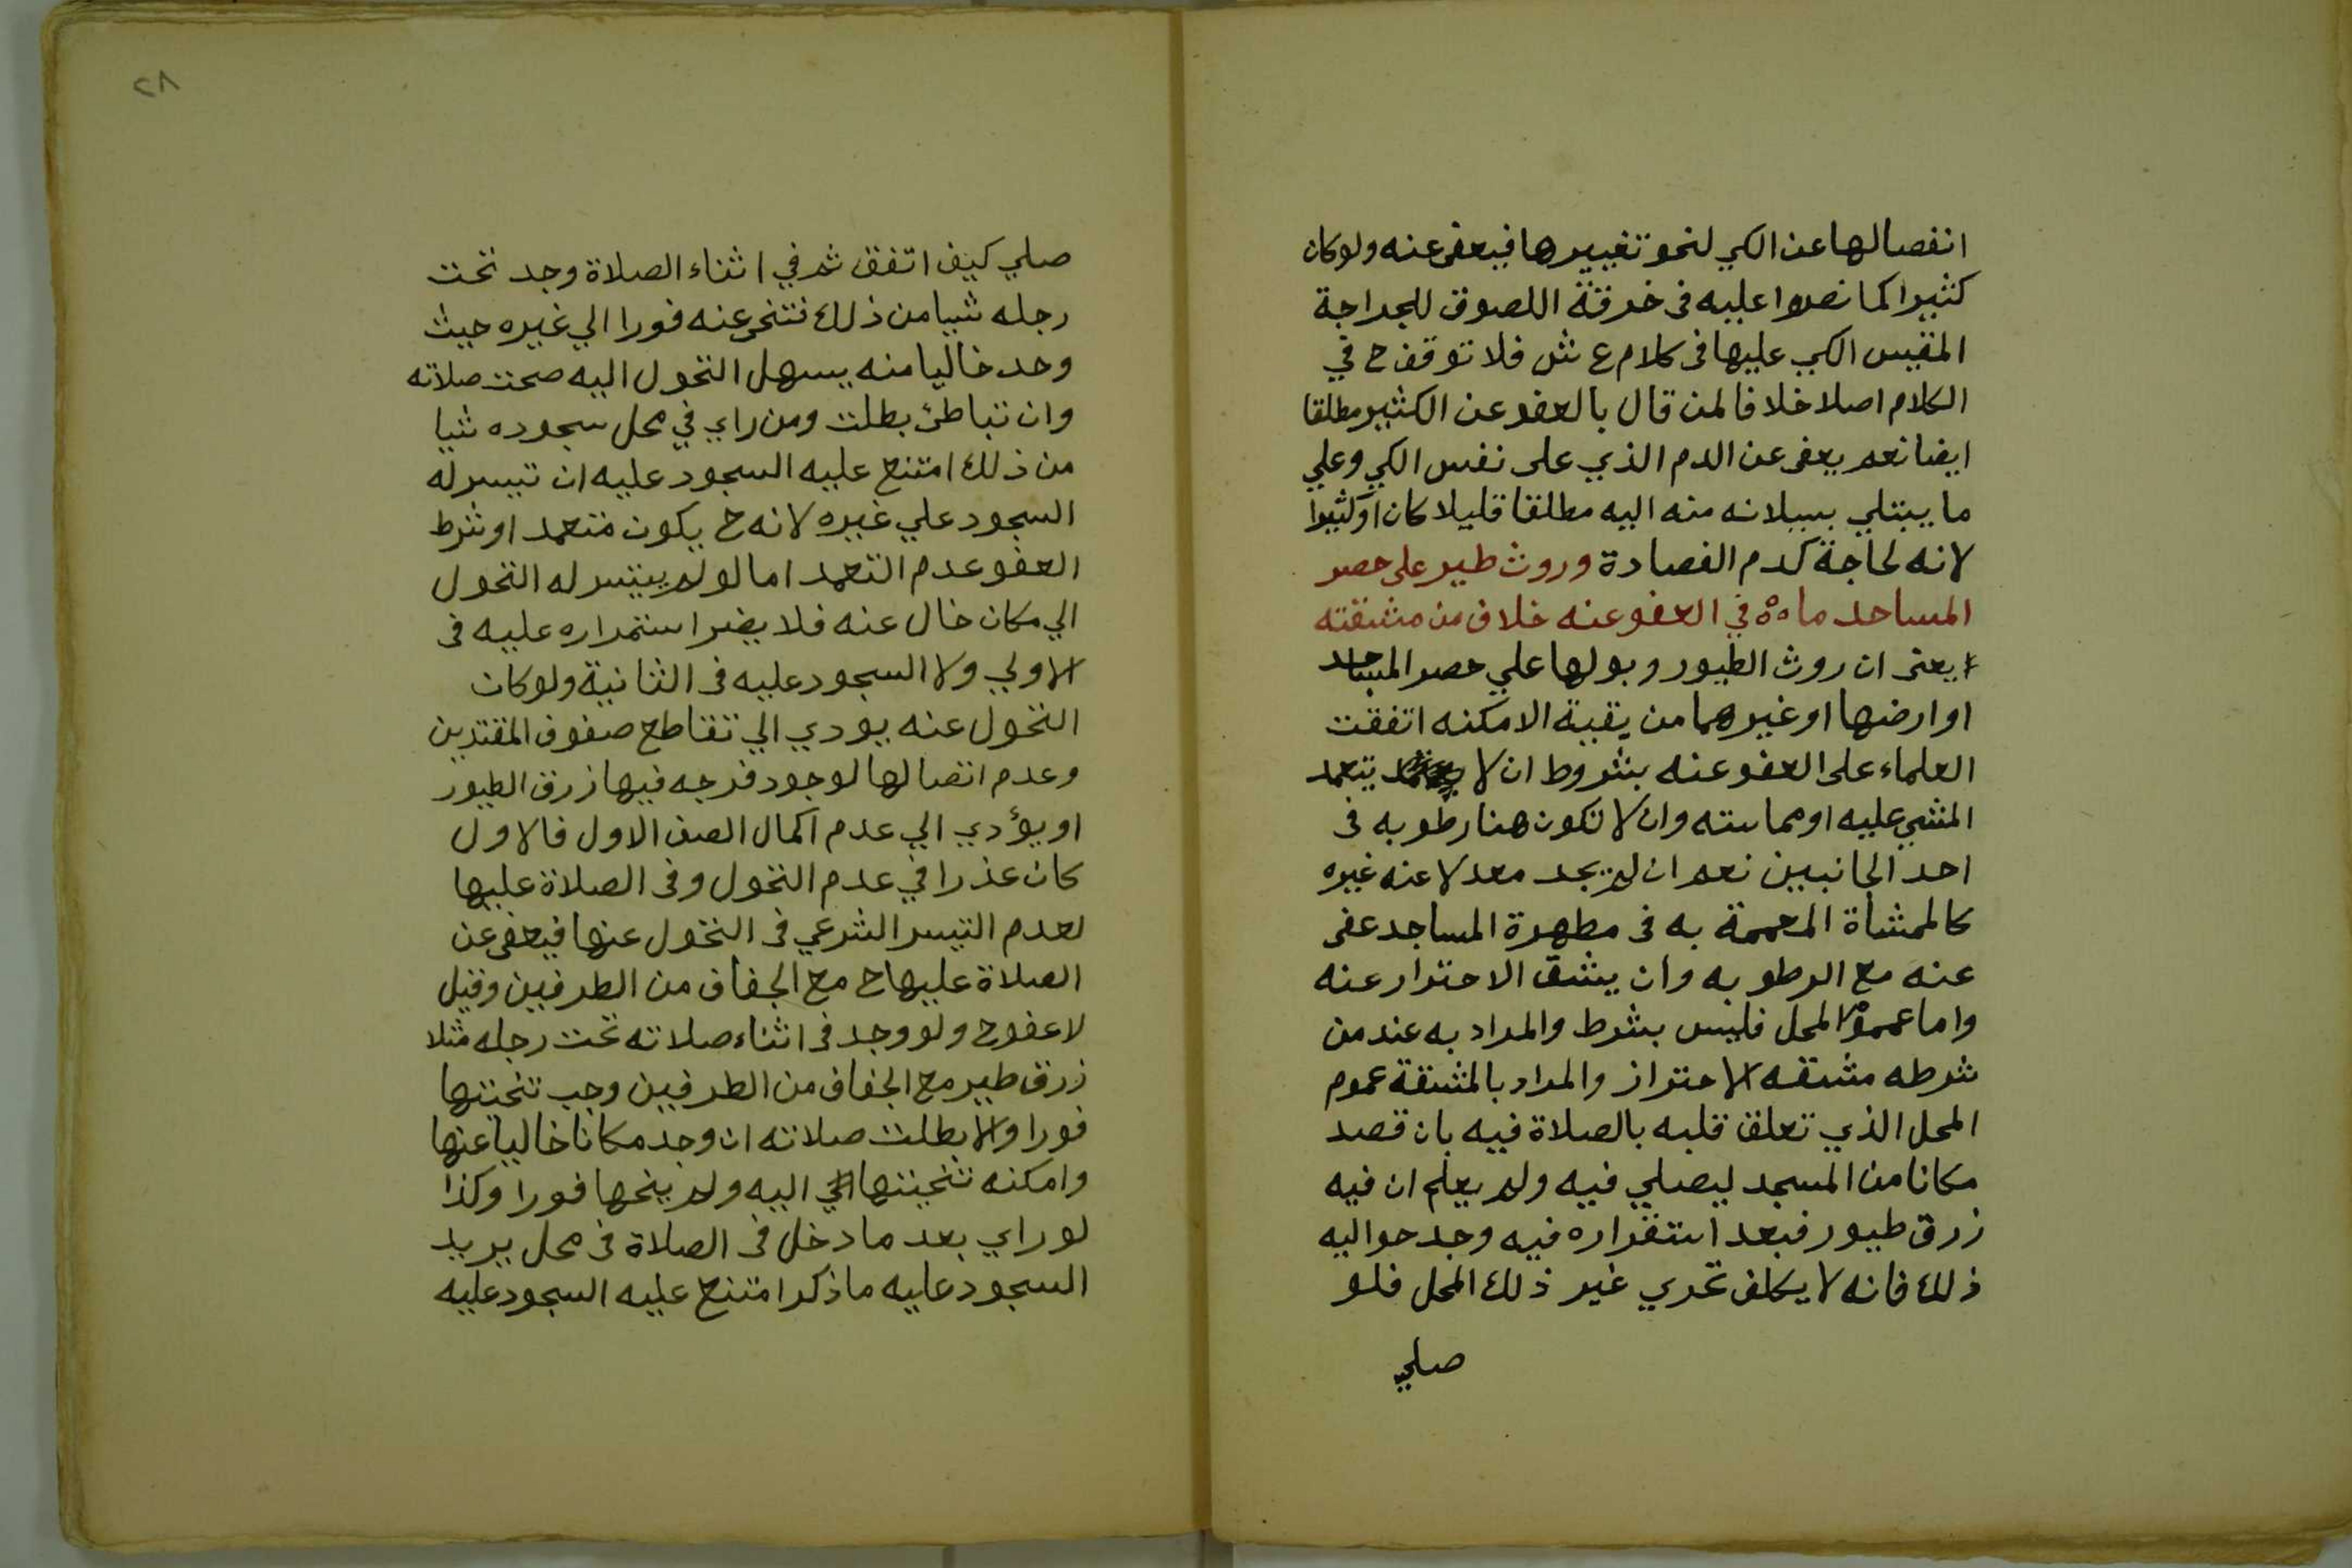 انفصالها عن الكي لنحو تغييرها فيعفى عنه ولو كان
كثيرا كما نصوا عليه في خرقة اللصوق للجراحة
المقيس الكي عليها في كلام ع ش فلا توقف ح في
الكلام اصلا خلافا لمن قال بالعفو عن الكثير مطلقا
ايضا نعم يعفى عن الدم الذي على نفس الكي وعلي
ما يبتلي بسيلانه منه اليه مطلقا قليلا كان او كثيرا
لانه لحاجة كدم الفصادة وروث طير على حصر
المساجد ما في العفو عنه خلاف من مشقته
يعني ان روث الطيور وبولها علي حصر المساجد
او ارضها او غيرهما من بقية الامكنه اتفقت
العلماء على العفو عنه بشروط ان لا يتعمد
المشي عليه او مماسته وان لا تكون هنا رطوبه في
احد الجانبين نعم ان لم يجد معدلا عنه غيره
كالممشاة المعممة به في مطهرة المساجد عفى
عنه مع الرطوبه وان يشق الاحتراز عنه
واما عموم المحل فليس بشرط والمراد به عند من
شرطه مشقه الاحتراز والمراد بالمشقة عموم
المحل الذي تعلق قلبه بالصلاة فيه بان قصد
مكانا من المسجد ليصلي فيه ولم يعلم ان فيه
زرق طيور فبعد استقراره فيه وجد حواليه
ذلك فانه لا يكلف تحري غير ذلك المحل فلو
صلي
٢٨
صلي كيف اتفق ثم في اثناء الصلاة وجد تحت
رجله شيا من ذلك فتنحى عنه فورا الي غيره حيث
وجد خاليا منه يسهل التحول اليه صحت صلاته
وان تباطئ بطلت ومن راي في محل سجوده شيا
من ذلك امتنع عليه السجود عليه ان تيسر له
السجود علي غيره لانه ح يكون متعمد او شرط
العفو عدم التعمد اما لو لم يتيسر له التحول
الي مكان خال عنه فلا يضر استمراره عليه في
الاولي ولا السجود عليه في الثانية ولو كان
التحول عنه يودي الي تقاطع صفوف المقتدين
وعدم اتصالها لوجود فرجه فيها زرق الطيور
او يؤدي الي عدم اكمال الصف الاول فالاول
كان عذرا في عدم التحول وفي الصلاة عليها
لعدم التيسر الشرعي في التحول عنها فيعفى عن
الصلاة عليها ح مع الجفاف من الطرفين وقيل
لا عفو ح ولو وجد في اثناء صلاته تحت رجله مثلا
زرق طير مع الجفاف من الطرفين وجب تنحيتها
فورا والا بطلت صلاته ان وجد مكانا خاليا عنها
وامكنه تنحيتها اليه ولم ينحها فورا وكذا
لو راي بعد ما دخل في الصلاة في محل يريد
السجود عليه ما ذكر امتنع عليه السجود عليه